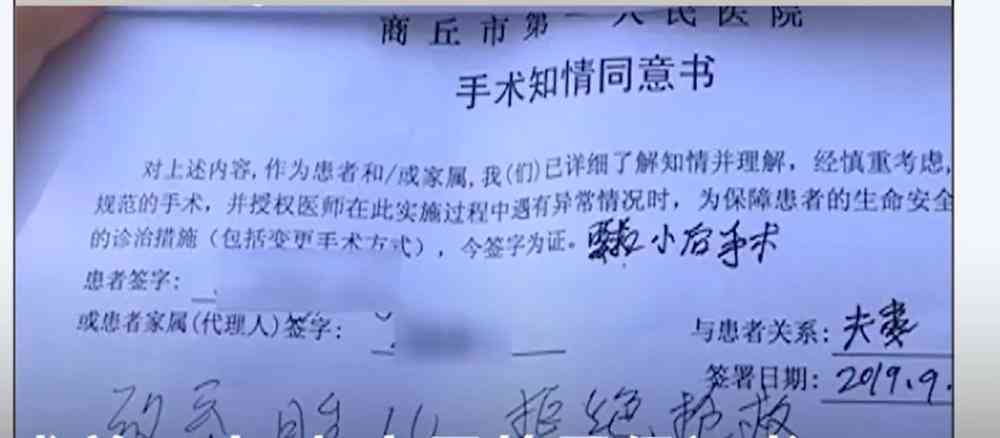 商丘市第一人民医院
手术知情同意书
对上述内容,作为患者和/或家属,我(们)已详细了解知情并理解，经慎重考虑,
规范的手术，并授权医师在此实施过程中遇有异常情况时，为保障患者的生命安全
的诊治措施（包括变更手术方式），今签字为证。 小后手术
患者签字:
或患者家属(代理人)签字: 与患者关系: 夫妻
签署日期: 2019.9.
拒绝抢救